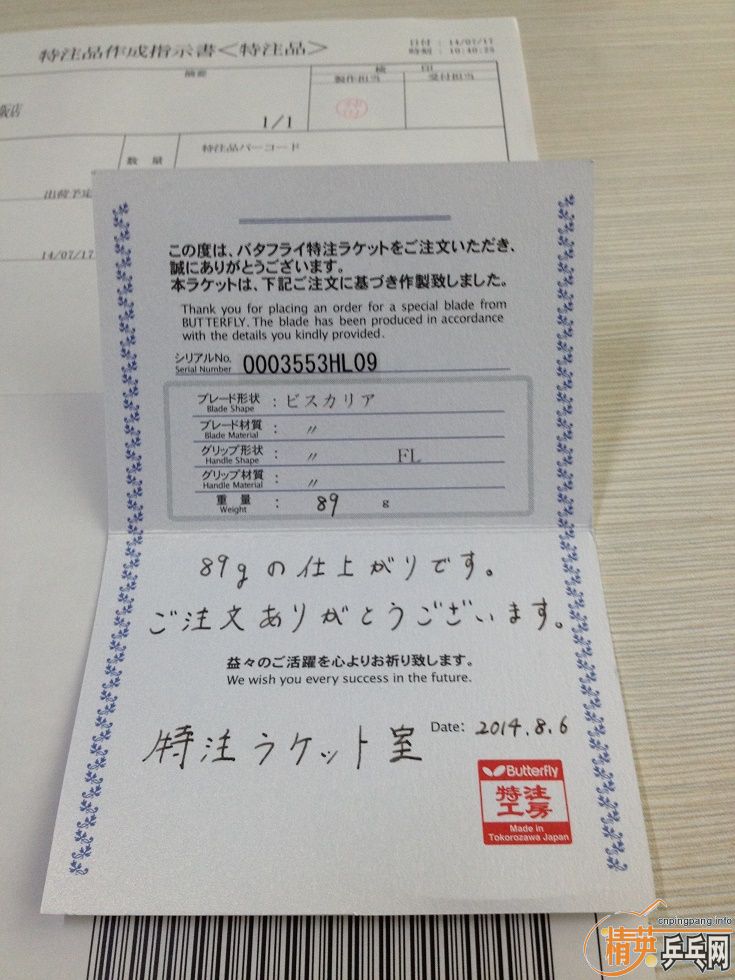 特注品作成指示書<特注品>
日付 : 14/07/17
時刻 : 10:40:25
摘要
検 印
製作担当 受付担当
販店
1/1
数 量
特注品バーコード
出荷予定
14/07/17
この度は、バタフライ特注ラケットをご注文いただき、
誠にありがとうございます。
本ラケットは、下記ご注文に基づき作製致しました。
Thank you for placing an order for a special blade from
BUTTERFLY. The blade has been produced in accordance
with the details you kindly provided.
シリアルNo.
Serial Number
0003553HL09
ブレード形状 : ビスカリア
Blade Shape
ブレード材質 : 〃
Blade Material
グリップ形状 : 〃 FL
Handle Shape
グリップ材質 : 〃
Handle Material
重 量 : 89 g
Weight
89gの仕上がりです。
ご注文ありがとうございます。
益々のご活躍を心よりお祈り致します。
We wish you every success in the future.
Date: 2014.8.6
特注ラケット室
Butterfly
特注
工房
Made in
Tokorozawa Japan
cnpingpang.info
精英乒乓网